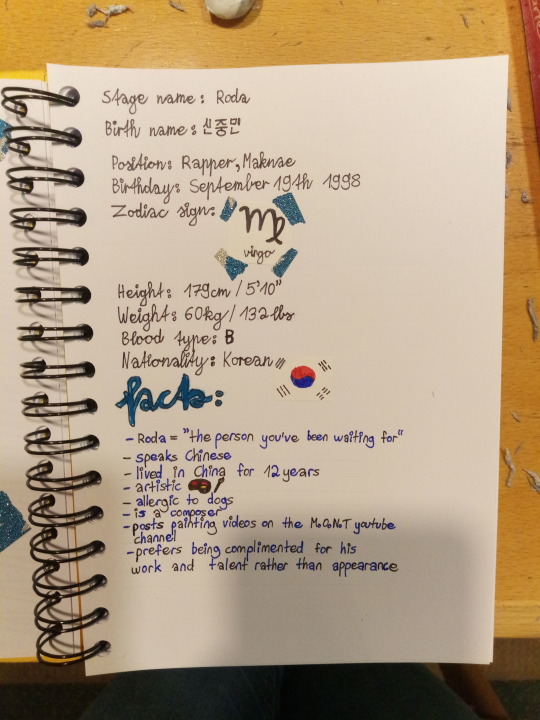 Stage name: Roda
Birth name: 신중민
Position: Rapper, Maknae
Birthday: September 19th 1998
Zodiac sign:
virgo
Height: 179cm / 5'10"
Weight: 60kg / 132 lbs
Blood type: B
Nationality: Korean
facts:
- Roda = "the person you've been waiting for"
- speaks Chinese
- lived in China for 12 years
- artistic
- allergic to dogs
- is a composer
- posts painting videos on the MoCoNoT youtube
channel
- prefers being complimented for his
work and talent rather than appearance